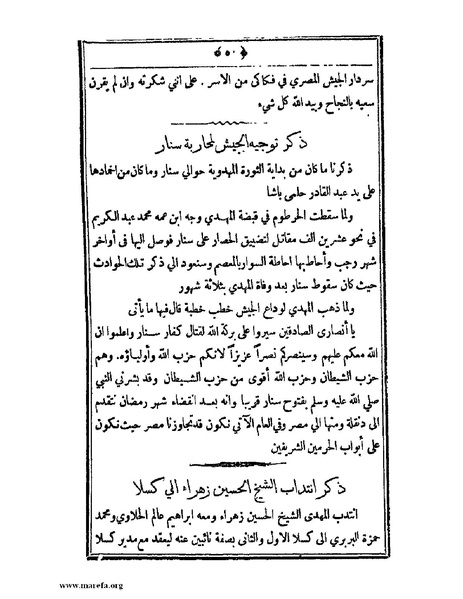 ﴿ ٥٠ ﴾
سردار الجيش المصري في فكاكى من الاسر . على انني شكرته وان لم يقرن
سعيه بالنجاح وبيد الله كل شيء
ذكر توجيه الجيش لمحاربة سنار
ذكرنا ما كان من بداية الثورة المهدوية حوالي سنار وما كان من اخمادها
على يد عبد القادر حلمى باشا
ولما سقطت الخرطوم في قبضة المهدي وجه ابن عمه محمد عبد الكريم
في نحو عشرين الف مقاتل لتضييق الحصار على سنار فوصل اليها فى أواخر
شهر رجب وأحاط بها احاطة السوار بالمعصم وسنعود الي ذكر تلك الحوادث
حيث كان سقوط سنار بعد وفاة المهدي بثلاثة شهور
ولما ذهب المهدي لوداع الجيش خطب خطبة قال فيها ما يأتى
يا أنصارى الصادقين سيروا على بركة الله لقتال كفار سنار واعلموا ان
الله معكم عليهم وسينصركم نصراً عزيزاً لانكم حزب الله وأولياؤه. وهم
حزب الشيطان وحزب الله أقوى من حزب الشيطان وقد بشرني النبي
صلي الله عليه وسلم بفتوح سنار قريبا وانه بعد انقضاء شهر رمضان نتقدم
الى دنقلة ومنها الي مصر وفي العام الآتي نكون قد تجاوزنا مصر حيث نكون
على أبواب الحرمين الشريفين
ذكر انتداب الشيخ الحسين زهراء الي كسلا
انتدب المهدى الشيخ الحسين زهراء ومعه ابراهيم عالم الحلاوي ومحمد
حمزة البربري الى كسلا الاول والثانى بصفة نائبين عنه ليعقد مع مدير كسلا
www.marefa.org